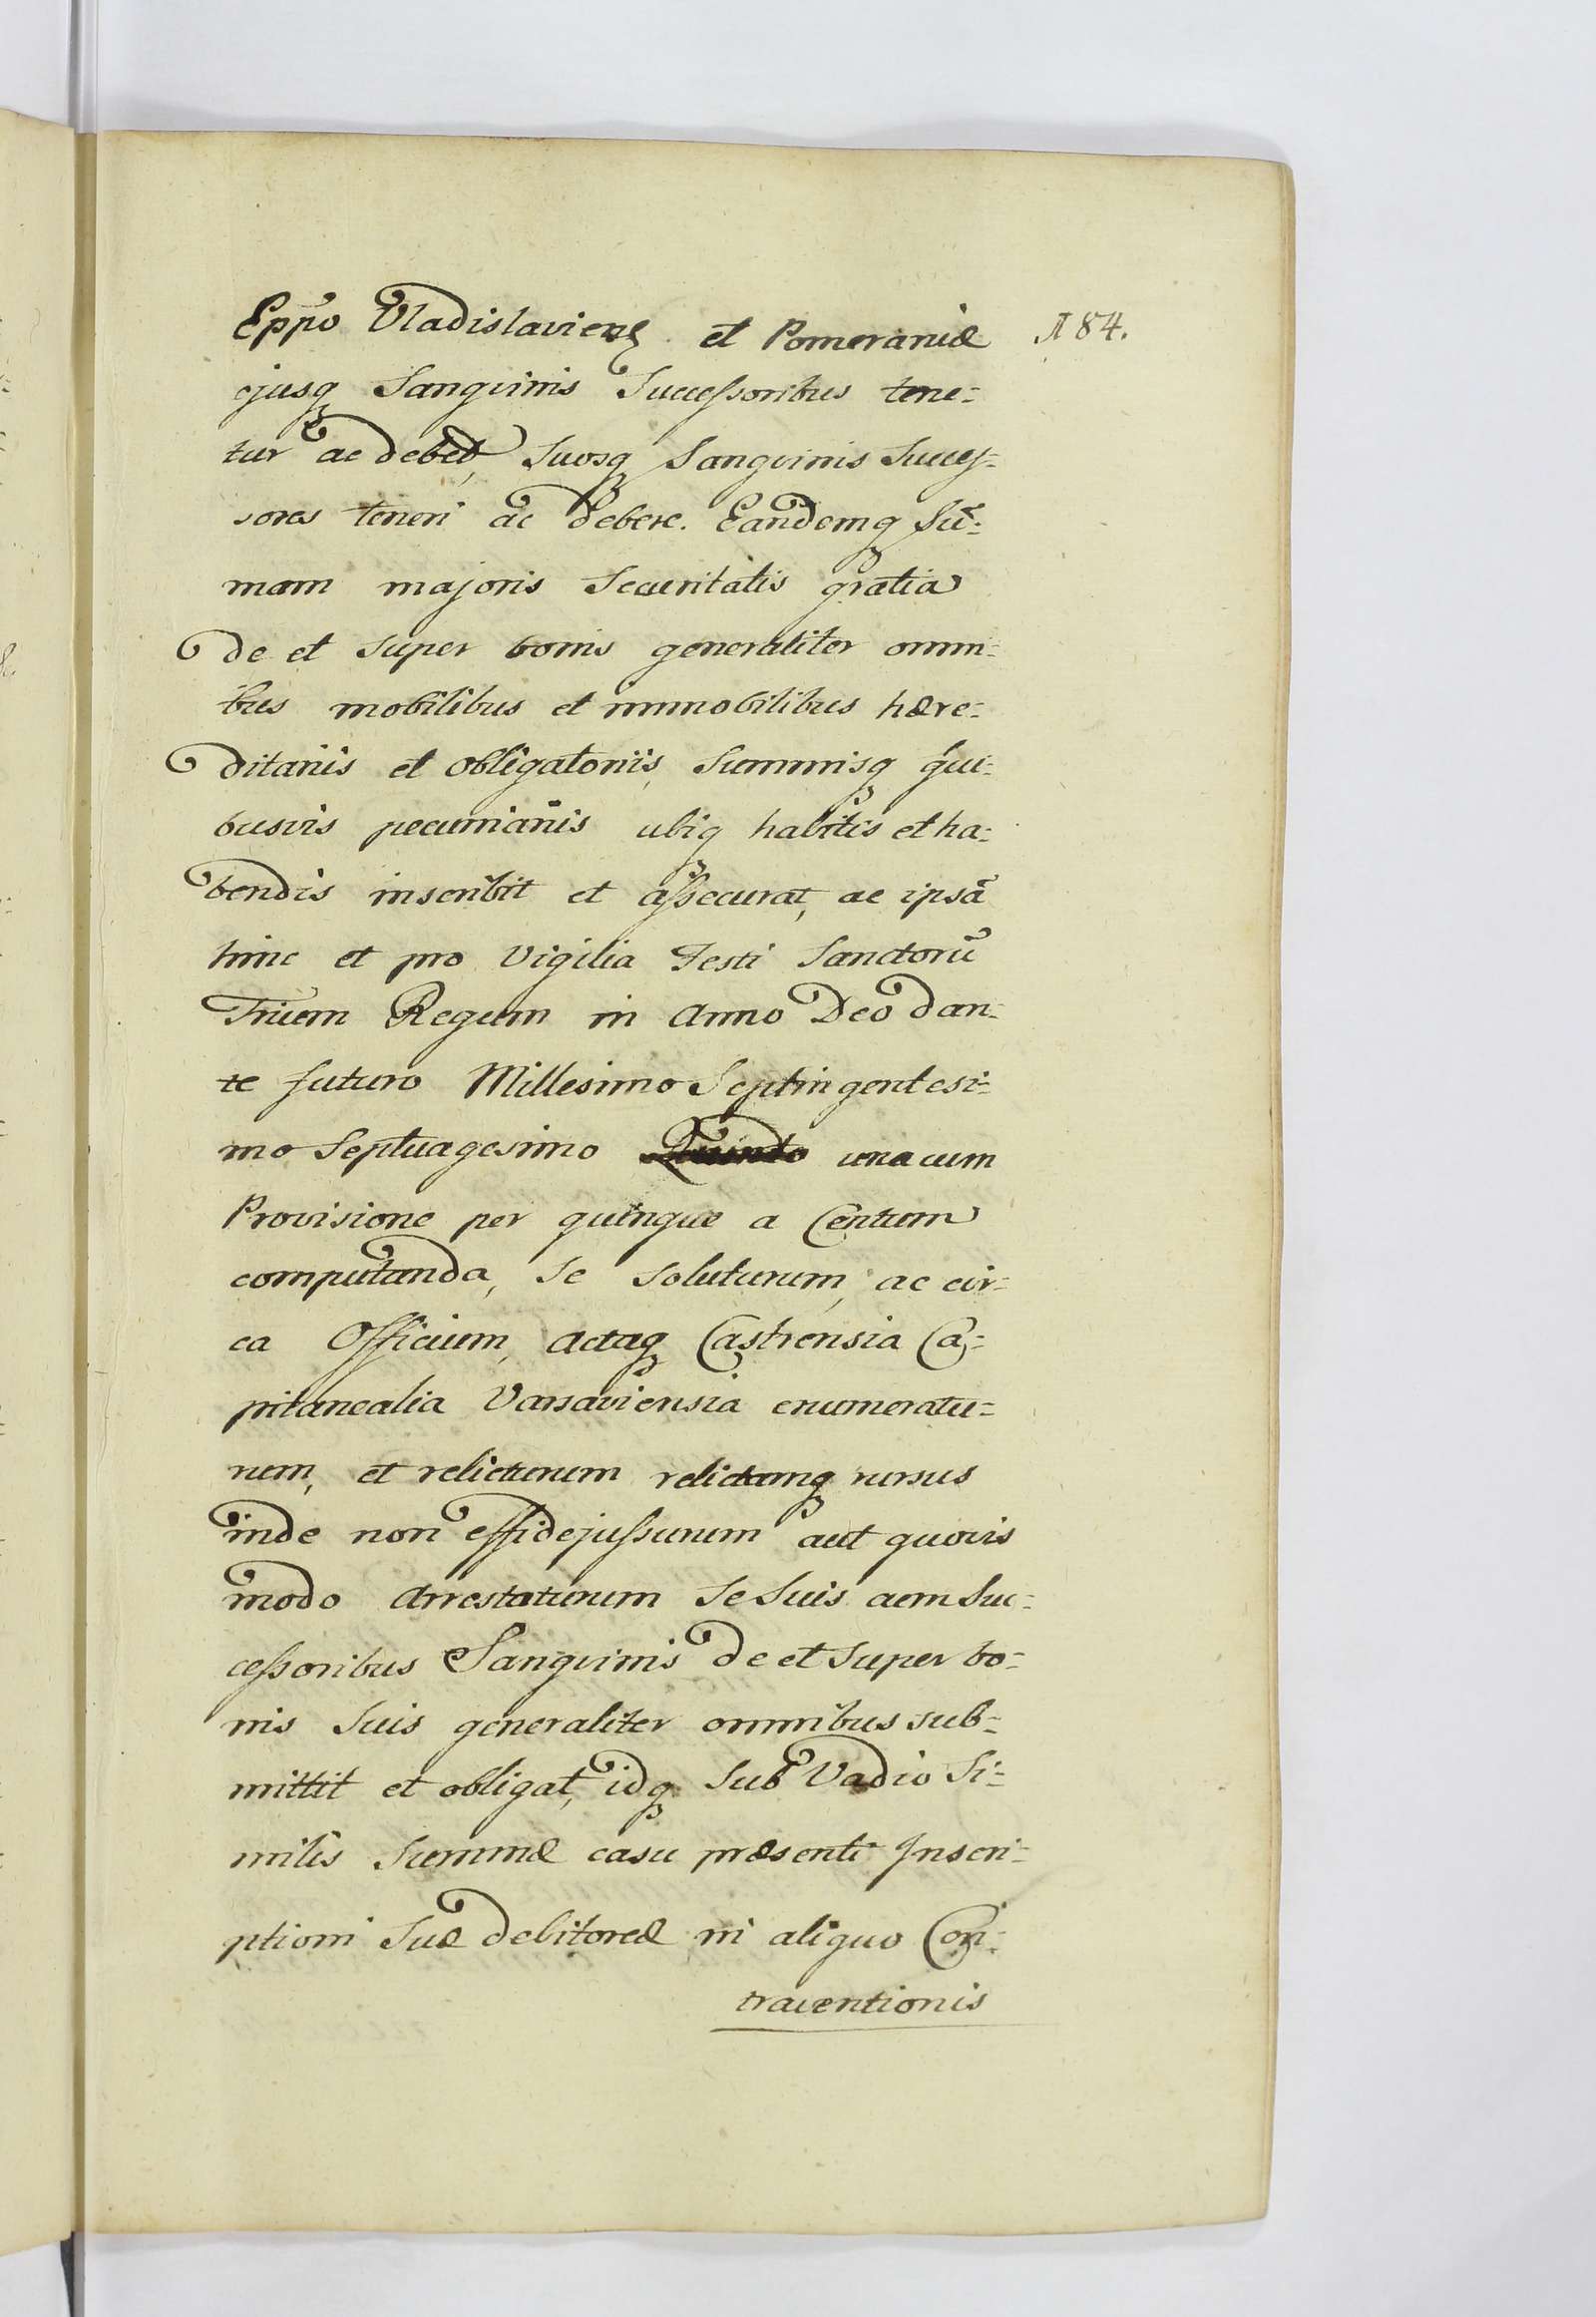 Eppo Vladislaviens. et Pomeraniæ
184.
ejusq Sangvinis Successoribus tene=
tur ac debet, Suosq Sangvinis Succes=
sores teneri ac debere. Eandemq Sũ=
mam majoris Securitatis gratia
de et super bonis generaliter omni=
bus mobilibus et immobilibus hære=
ditariis et obligatoriis, Summisq qui=
busvis pecuniariis ubiq habitis et ha=
bendis inscribit et assecurat, ac ipsã
hinc et pro Vigilia Festi Sanctorũ
Trium Regum in Anno Deo dan=
te futuro Millesimo Septingentesi=
mo Septuagesimo Quinto una cum
Provisione per quinque a Centum
computanda, se soluturum, ac cir=
ca Officium, Actaq Castrensia Ca=
pitanealia Varsaviensia enumeratu=
rum, et relicturum relictamq rursus
inde non effidejussurum aut quovis
modo Arrestaturum se Suis cum Suc=
cessoribus Sangvinis de et super bo=
nis Suis generaliter omnibus sub=
mittit et obligat, idq. Sub Vadio Si=
milis Summæ casu præsenti Inscri=
ptioni Suæ debitoreæ in aliquo Con=
traventionis